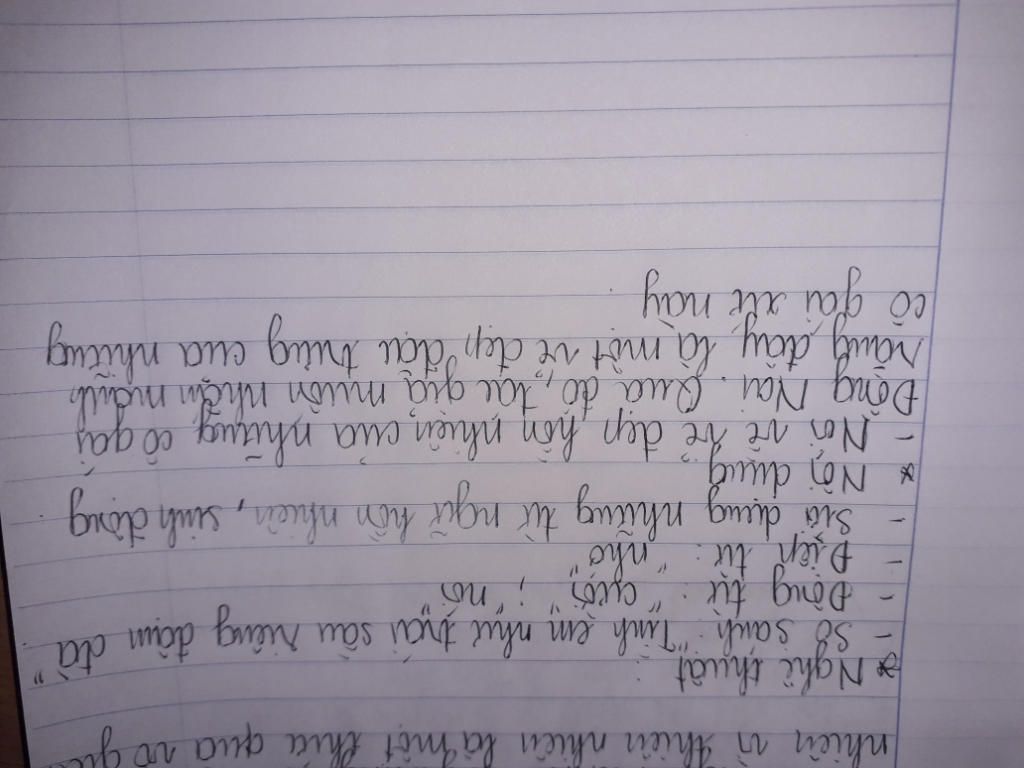 nhiên vì thiên nhiên là một thứ quà vô giá
* Nghệ thuật :
- So sánh: "Tình em như trái sầu riêng đậm đà"
- Động từ : "cười" ; "nói"
- Điệp từ : "nhớ"
- Sử dụng những từ ngữ hồn nhiên, sinh động .
* Nội dung
- Nói về vẻ đẹp hồn nhiên của những cô gái
Đồng Nai. Qua đó, tác giả muốn nhấn mạnh
rằng, đây là một vẻ đẹp đặc trưng của những
cô gái xứ này .